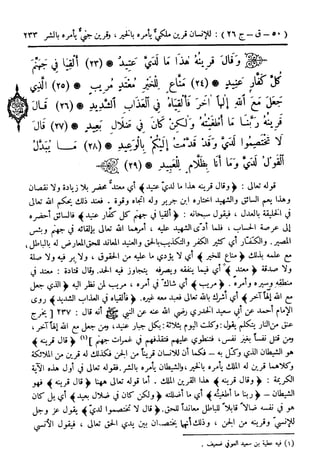 (٥٠ – ق – ج ٢٦) : للإنسان قرين ملكيٌّ يأمره بالخير، وقرين جنيٌّ يأمره بالشر ٢٣٣
وَقَالَ قَرِينُهُ هَذَا مَا لَدَيَّ عَتِيدٌ (٢٣) أَلْقِيَا فِي جَهَنَّمَ
كُلَّ كَفَّارٍ عَنِيدٍ (٢٤) مَنَّاعٍ لِلْخَيْرِ مُعْتَدٍ مُرِيبٍ (٢٥) الَّذِي
جَعَلَ مَعَ اللَّهِ إِلَهًا آخَرَ فَأَلْقِيَاهُ فِي الْعَذَابِ الشَّدِيدِ (٢٦) قَالَ
قَرِينُهُ رَبَّنَا مَا أَطْغَيْتُهُ وَلَكِنْ كَانَ فِي ضَلَالٍ بَعِيدٍ (٢٧) قَالَ
لَا تَخْتَصِمُوا لَدَيَّ وَقَدْ قَدَّمْتُ إِلَيْكُمْ بِالْوَعِيدِ (٢٨) مَا يُبَدَّلُ
الْقَوْلُ لَدَيَّ وَمَا أَنَا بِظَلَّامٍ لِلْعَبِيدِ (٢٩)
قوله تعالى : ﴿وقال قرينه هذا ما لدي عتيد﴾ أي معتد محضر بلا زيادة ولا نقصان
وهذا يعم السائق والشهيد اختاره ابن جرير وله اتجاه وقوة . فعند ذلك يحكم الله تعالى
في الخليقة بالعدل، فيقول سبحانه : ﴿ألقيا في جهنم كل كفار عنيد﴾ فالسائق أحضره
إلى عرصة الحساب، فلما أدى الشهيد عليه، أمرهما الله تعالى بإلقائه في جهنم وبئس
المصير. والكفار أي كثير الكفر والتكذيب بالحق والعنيد المعاند للحق المعارض له بالباطل،
مع علمه بذلك ﴿مناع للخير﴾ أي لا يؤدي ما عليه من الحقوق ، ولا بر فيه ولا صلة
ولا صدقة ﴿معتد﴾ أي فيما ينفقه ويصرفه يتجاوز فيه الحد. وقال قتادة : معتد في
منطقه وسيره وأمره . ﴿مريب﴾ أي شاك في أمره ، مريب لمن نظر اليه ﴿الذي جعل
مع الله إلهاً آخر﴾ أي أشرك بالله تعالى فعبد معه غيره. ﴿فألقياه في العذاب الشديد﴾ روى
الإمام أحمد عن أبي سعيد الخدري رضي الله عنه عن النبي ﷺ أنه قال : ٢٣٧ [يخرج
عنق من النار يتكلم يقول: وكلت اليوم بثلاثة: بكل جبار عنيد، ومن جعل مع الله إلهاً آخر،
ومن قتل نفساً بغير نفس، فتنطوي عليهم فتقذفهم في غمرات جهنم](١) ﴿قال قرينه﴾
هو الشيطان الذي وكل به – فكما أن للانسان قريناً من الجن فكذلك له قرين من الملائكة
وكلاهما قرين له الملك يأمره بالخير، والشيطان يأمره بالشر. فقوله تعالى في أول هذه الآية
الكريمة : ﴿وقال قرينه﴾ هذا القرين الملك . أما قوله تعالى ههنا ﴿قال قرينه﴾ فهو
الشيطان – ﴿ربنا ما أطغيته﴾ أي ما أضللته ﴿ولكن كان في ضلال بعيد﴾ أي بل كان
هو في نفسه ضالاً قابلاً للباطل معانداً للحق. ﴿قال لا تختصموا لدي﴾ يقول عز وجل
للإنسي وقرينه من الجن ، وذلك أنهما يختصمان بين يدي الحق تعالى ، فيقول الأنسي
(١) فيه عطية بن سعيد العوفي ضعيف .